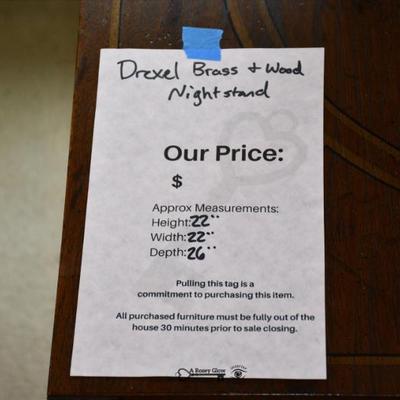 Drexel Brass + Wood
Nightstand
Our Price:
$
Approx Measurements:
Height: 22"
Width: 22"
Depth: 26"
Pulling this tag is a
commitment to purchasing this item.
All purchased furniture must be fully out of the
house 30 minutes prior to sale closing.
A Rosey Glow